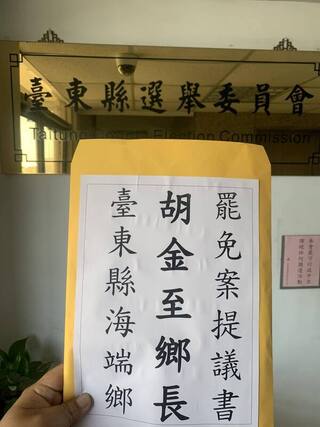 臺東縣選舉委員會
Taitung County Election Commission
罷免案提議書
胡金至鄉長
臺東縣海端鄉